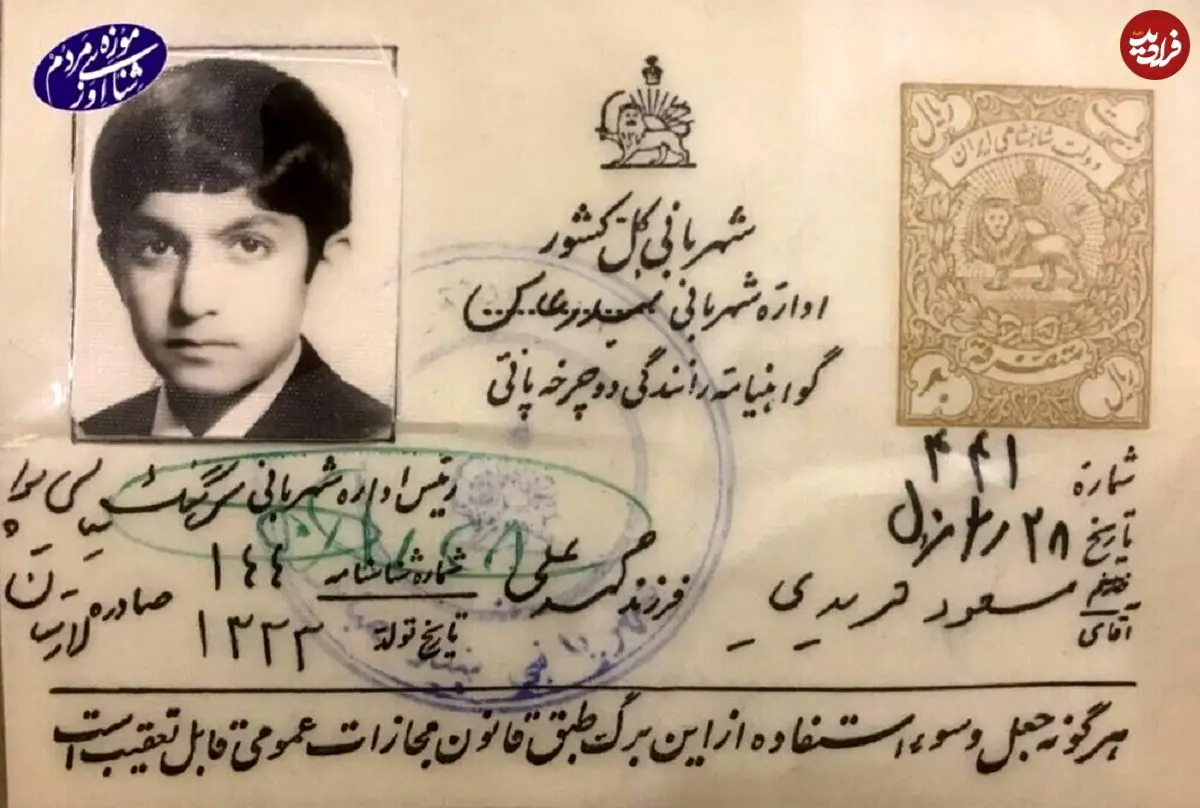 موزه مردم
شناسی اوز
فرادید
شهربانی کل کشور
اداره شهربانی
گواهینامه رانندگی دوچرخه پائی
ریال
دولت شاهنشاهی ایران
متفرقه
ریال
شماره ۴۴۱
تاریخ ۲۸
خانم
آقای مسعود فریدی
فرزند محمد علی
شماره شناسنامه ۱۴۴
تاریخ تولد ۱۳۳۳
صادره لارستان
رئیس اداره شهربانی سرهنگ
هرگونه جعل و سوء استفاده از این برگ طبق قانون مجازات عمومی قابل تعقیب است